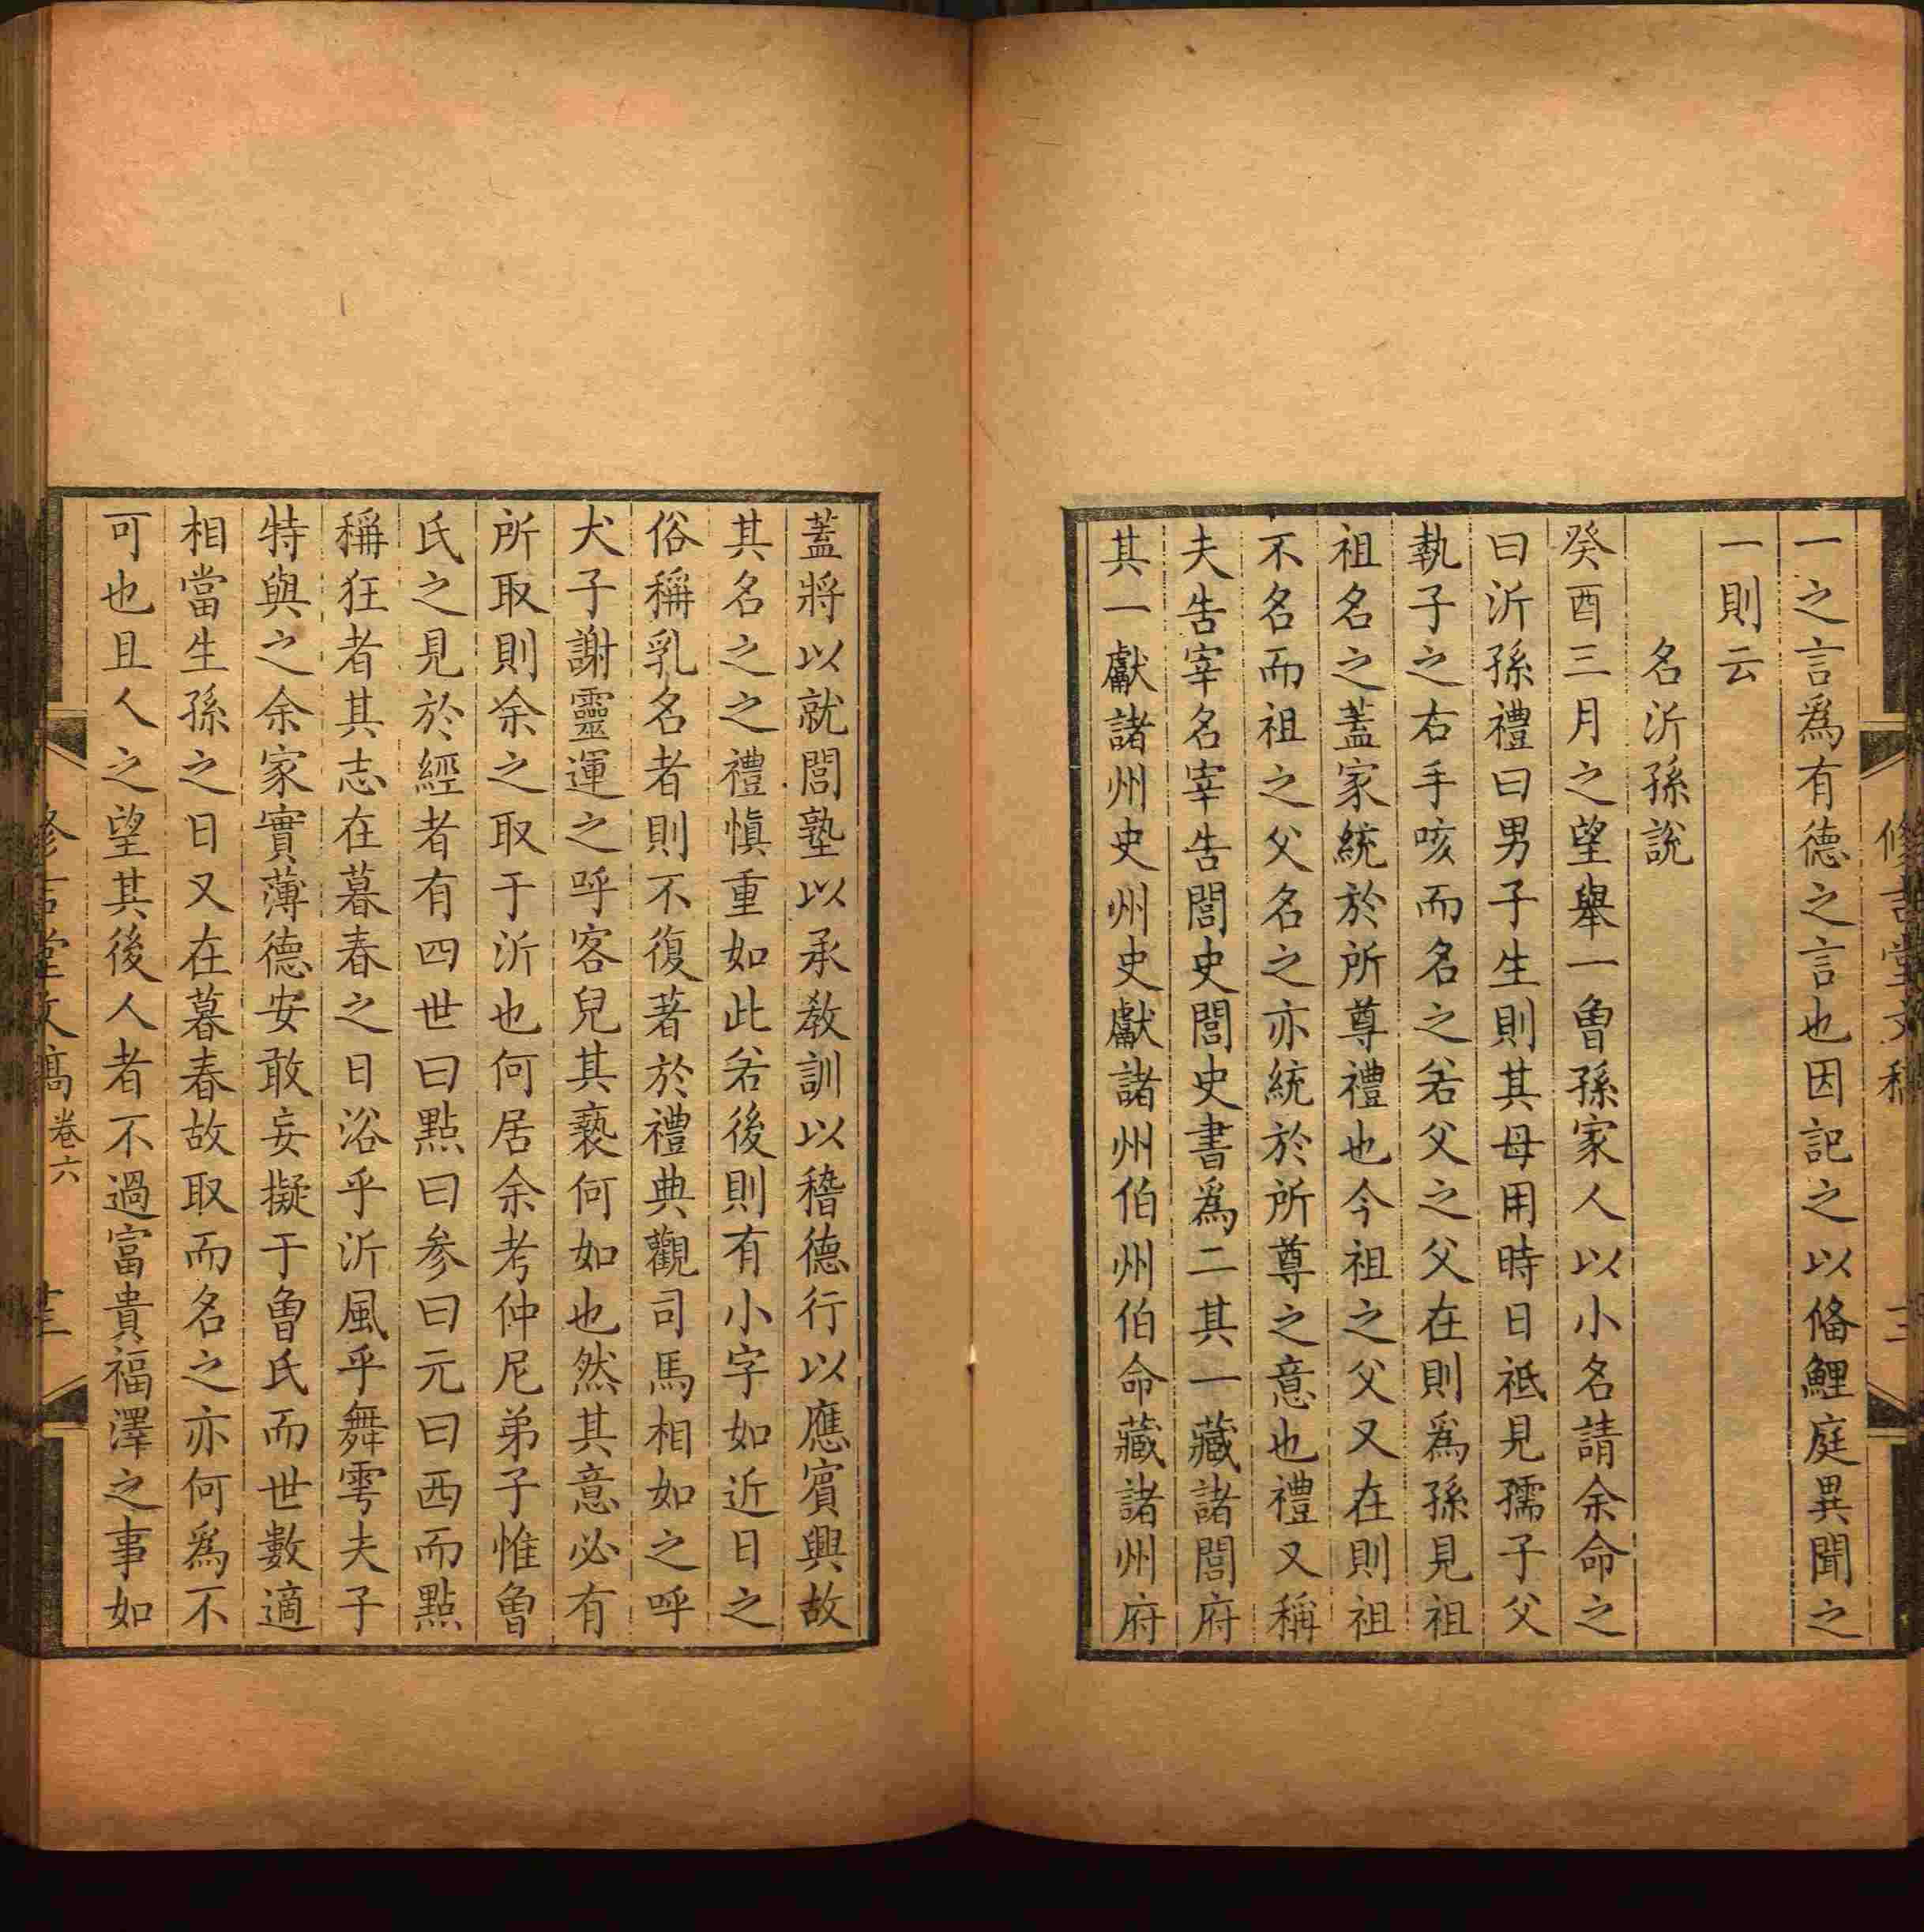 一之言爲有德之言也因記之以俻鯉庭異聞之
一則云
名沂孫說
癸酉三月之望舉一曾孫家人以小名請余命之
曰沂孫禮曰男子生則其母用時日祗見孺子父
執子之右手咳而名之若父之父在則爲孫見祖
祖名之蓋家統於所尊禮也今祖之父又在則祖
不名而祖之父名之亦統於所尊之意也禮又稱
夫告宰名宰告閭史閭史書爲二其一藏諸閭府
其一獻諸州史州史獻諸州伯州伯命藏諸州府
蓋將以就閭塾以承敎訓以稽德行以應賓興故
其名之之禮愼重如此若後則有小字如近日之
俗稱乳名者則不復著於禮典觀司馬相如之呼
犬子謝靈運之呼客兒其褻何如也然其意必有
所取則余之取于沂也何居余考仲尼弟子惟曾
氏之見於經者有四世曰點曰參曰元曰西而點
稱狂者其志在暮春之日浴乎沂風乎舞雩夫子
特與之余家實薄德安敢妄擬于曾氏而世數適
相當生孫之日又在暮春故取而名之亦何爲不
可也且人之望其後人者不過富貴福澤之事如
堂文稿 卷六